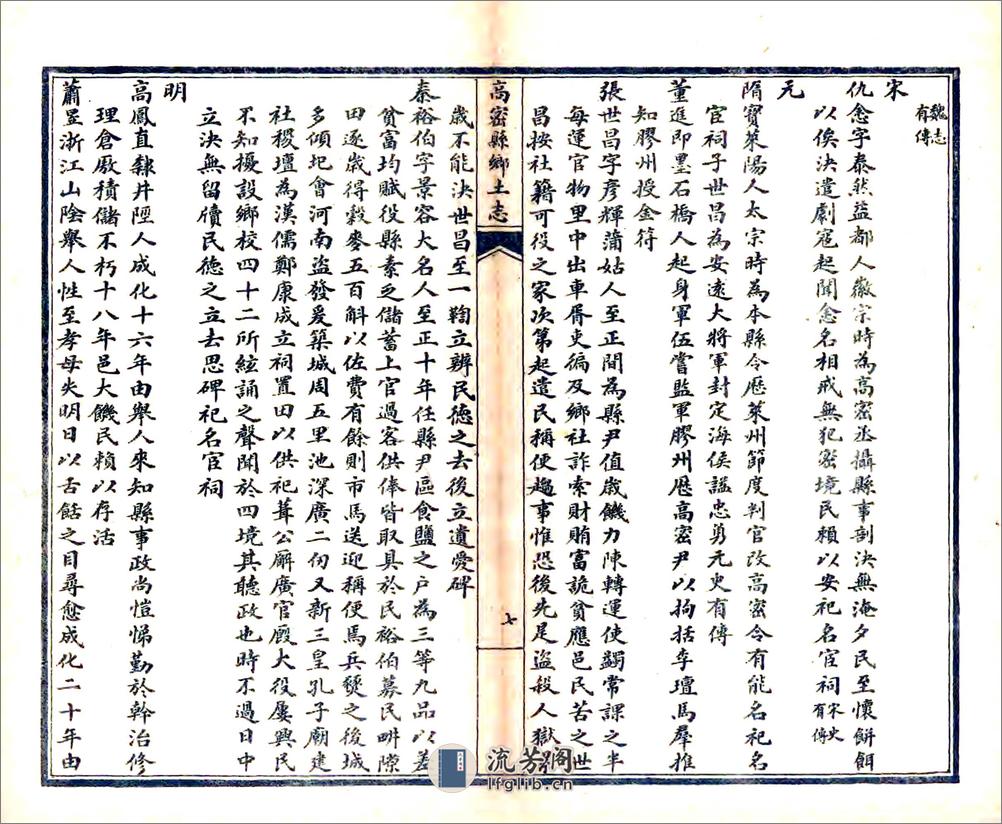 魏志
有傳
宋
仇悆字泰然益都人徽宗時為高密丞攝縣事剖決無淹夕民至懷餅餌
以俟決遣劇寇起聞悆名相戒無犯密境民賴以安祀名宦祠宋史有傳
元
隋寶萊陽人太宗時為本縣令歷萊州節度判官改高密令有能名祀名
宦祠子世昌為安遠大將軍封定海侯謚忠勇元史有傳
董進即墨石橋人起身軍伍嘗監軍膠州歷高密尹以拘括李璮馬羣推
知膠州授金符
張世昌字彥輝蒲姑人至正間為縣尹值歲饑力陳轉運使蠲常課之半
每運官物里中出車胥吏徧及鄉社詐索財賄富詭貧應邑民苦之世
昌按社籍可役之家次第起遣民稱便趨事惟恐後先是盜殺人獄
高密縣鄉土志
七
歲不能決世昌至一鞫立辨民德之去後立遺愛碑
秦裕伯字景容大名人至正十年任縣尹區食鹽之戶為三等九品以差
貧富均賦役縣素乏儲蓄上官過客供俸皆取具於民裕伯募民畊隙
田逐歲得穀麥五百斛以佐費有餘則市馬送迎稱便馬兵燹之後城
多傾圮會河南盜發爰築城周五里池深廣二勿又新三皇孔子廟建
社稷壇為漢儒鄭康成立祠置田以供祀葺公廨廣官廄大役屢興民
不知擾設鄉校四十二所絃誦之聲聞於四境其聽政也時不過日中
立決無留牘民德之立去思碑祀名宦祠
明
高鳳直隸井陘人成化十六年由舉人來知縣事政尚愷悌勤於幹治修
理倉廒積儲不朽十八年邑大饑民賴以存活
蕭昱浙江山陰舉人性至孝母失明日以舌餂之目尋愈成化二十年由
流芳阁
lfglib.cn